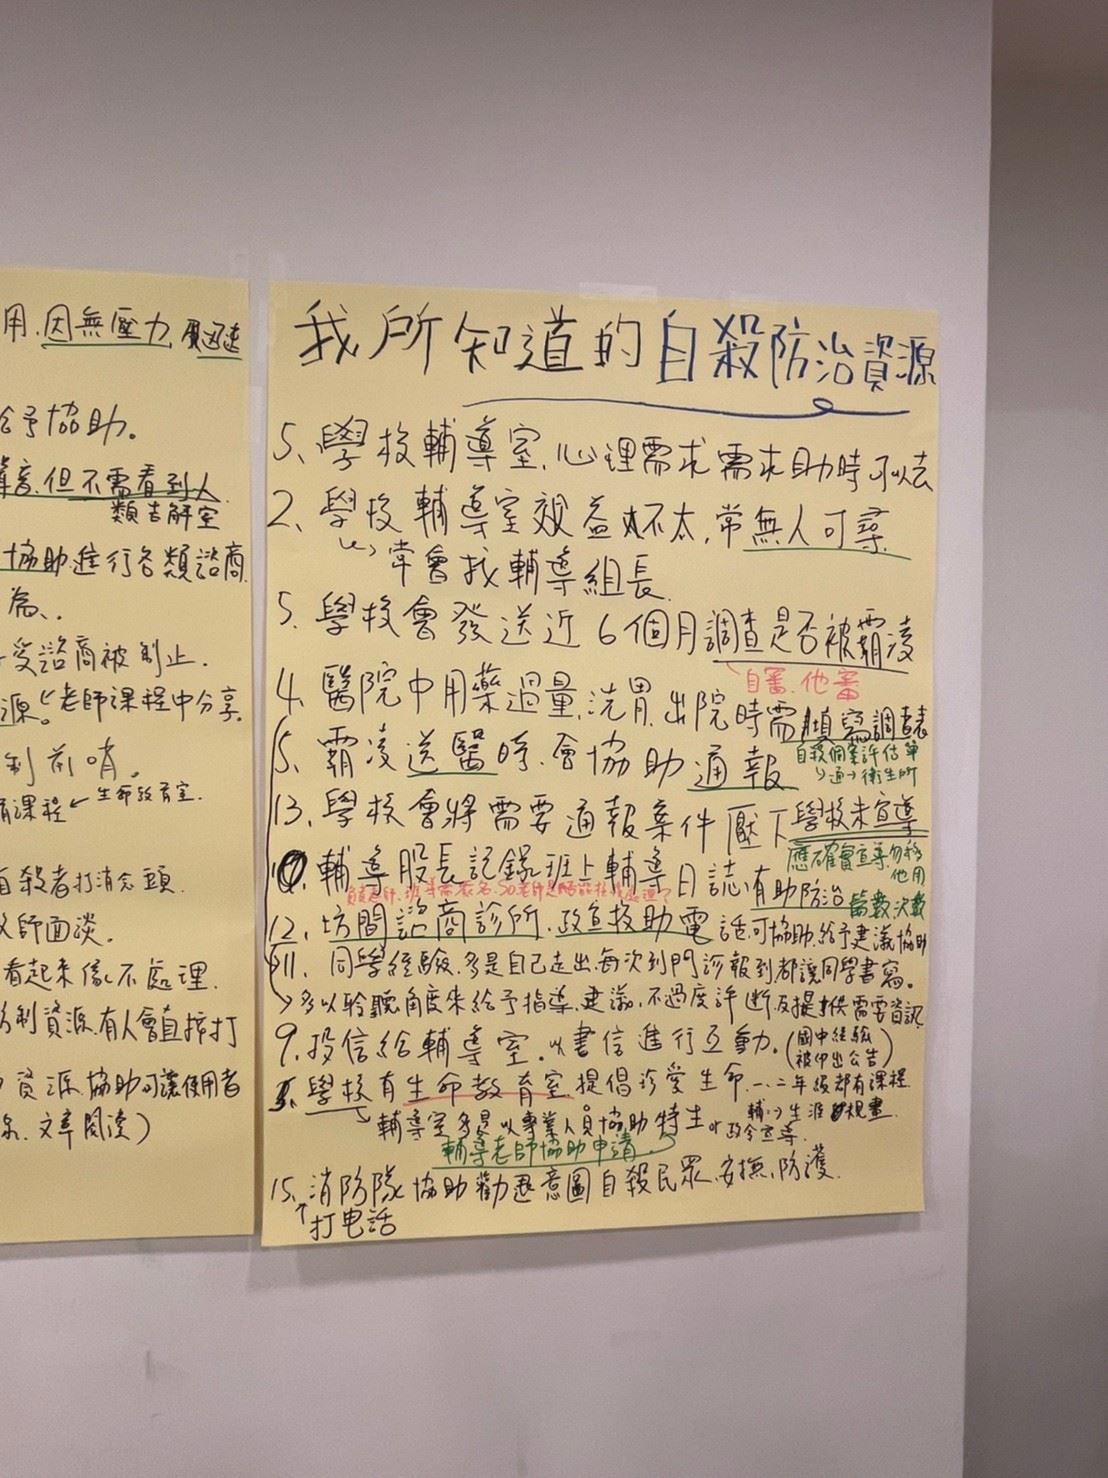 用、因無壓力,
給予協助。
但不需看到人
協助進行各類諮商
為、
受諮商被制止.
源。老師課程中分享。
制前哨。
課程←生命教育室.
自殺者打消念頭.
師面談。
看起來像不處理.
制資源、有人會直接打
資源、協助可讓使用者
文章閱讀)
我所知道的自殺防治資源
5、學校輔導室、心理需求需求助時可以去
2、學校輔導室效益不太,常無人可尋
常會找輔導組長
5. 學校會發送近6個月調查是否被霸凌
自審、他審
4、醫院中用藥過量、洗胃、出院時需填寫調查表
自殺個案評估單
衛生所
15、霸凌送醫時、會協助通報
13、學校會將需要通報案件壓下學校未宣導
應確實宣導勿移
他用
10、輔導股長記錄班上輔導日誌、有助防治
篇數、次數
12、坊間諮商診所、政宣扶助電話、可協助、給予建議協助
11、同學經驗、多是自己走出、每次到門診報到都讓同學書寫。
多以聆聽角度來給予指導、建議、不過度評斷及提供需要資訊
9、投信給輔導室、以書信進行互動。(國中經驗
被印出公告)
8、學校有生命教育室、提倡珍愛生命、一、二年級都有課程
輔導室多是以專業人員協助特生 輔:生涯規畫.
政令宣導.
輔導老師協助申請
15、消防隊協助勸退意圖自殺民眾、安撫、防護.
↑打电話